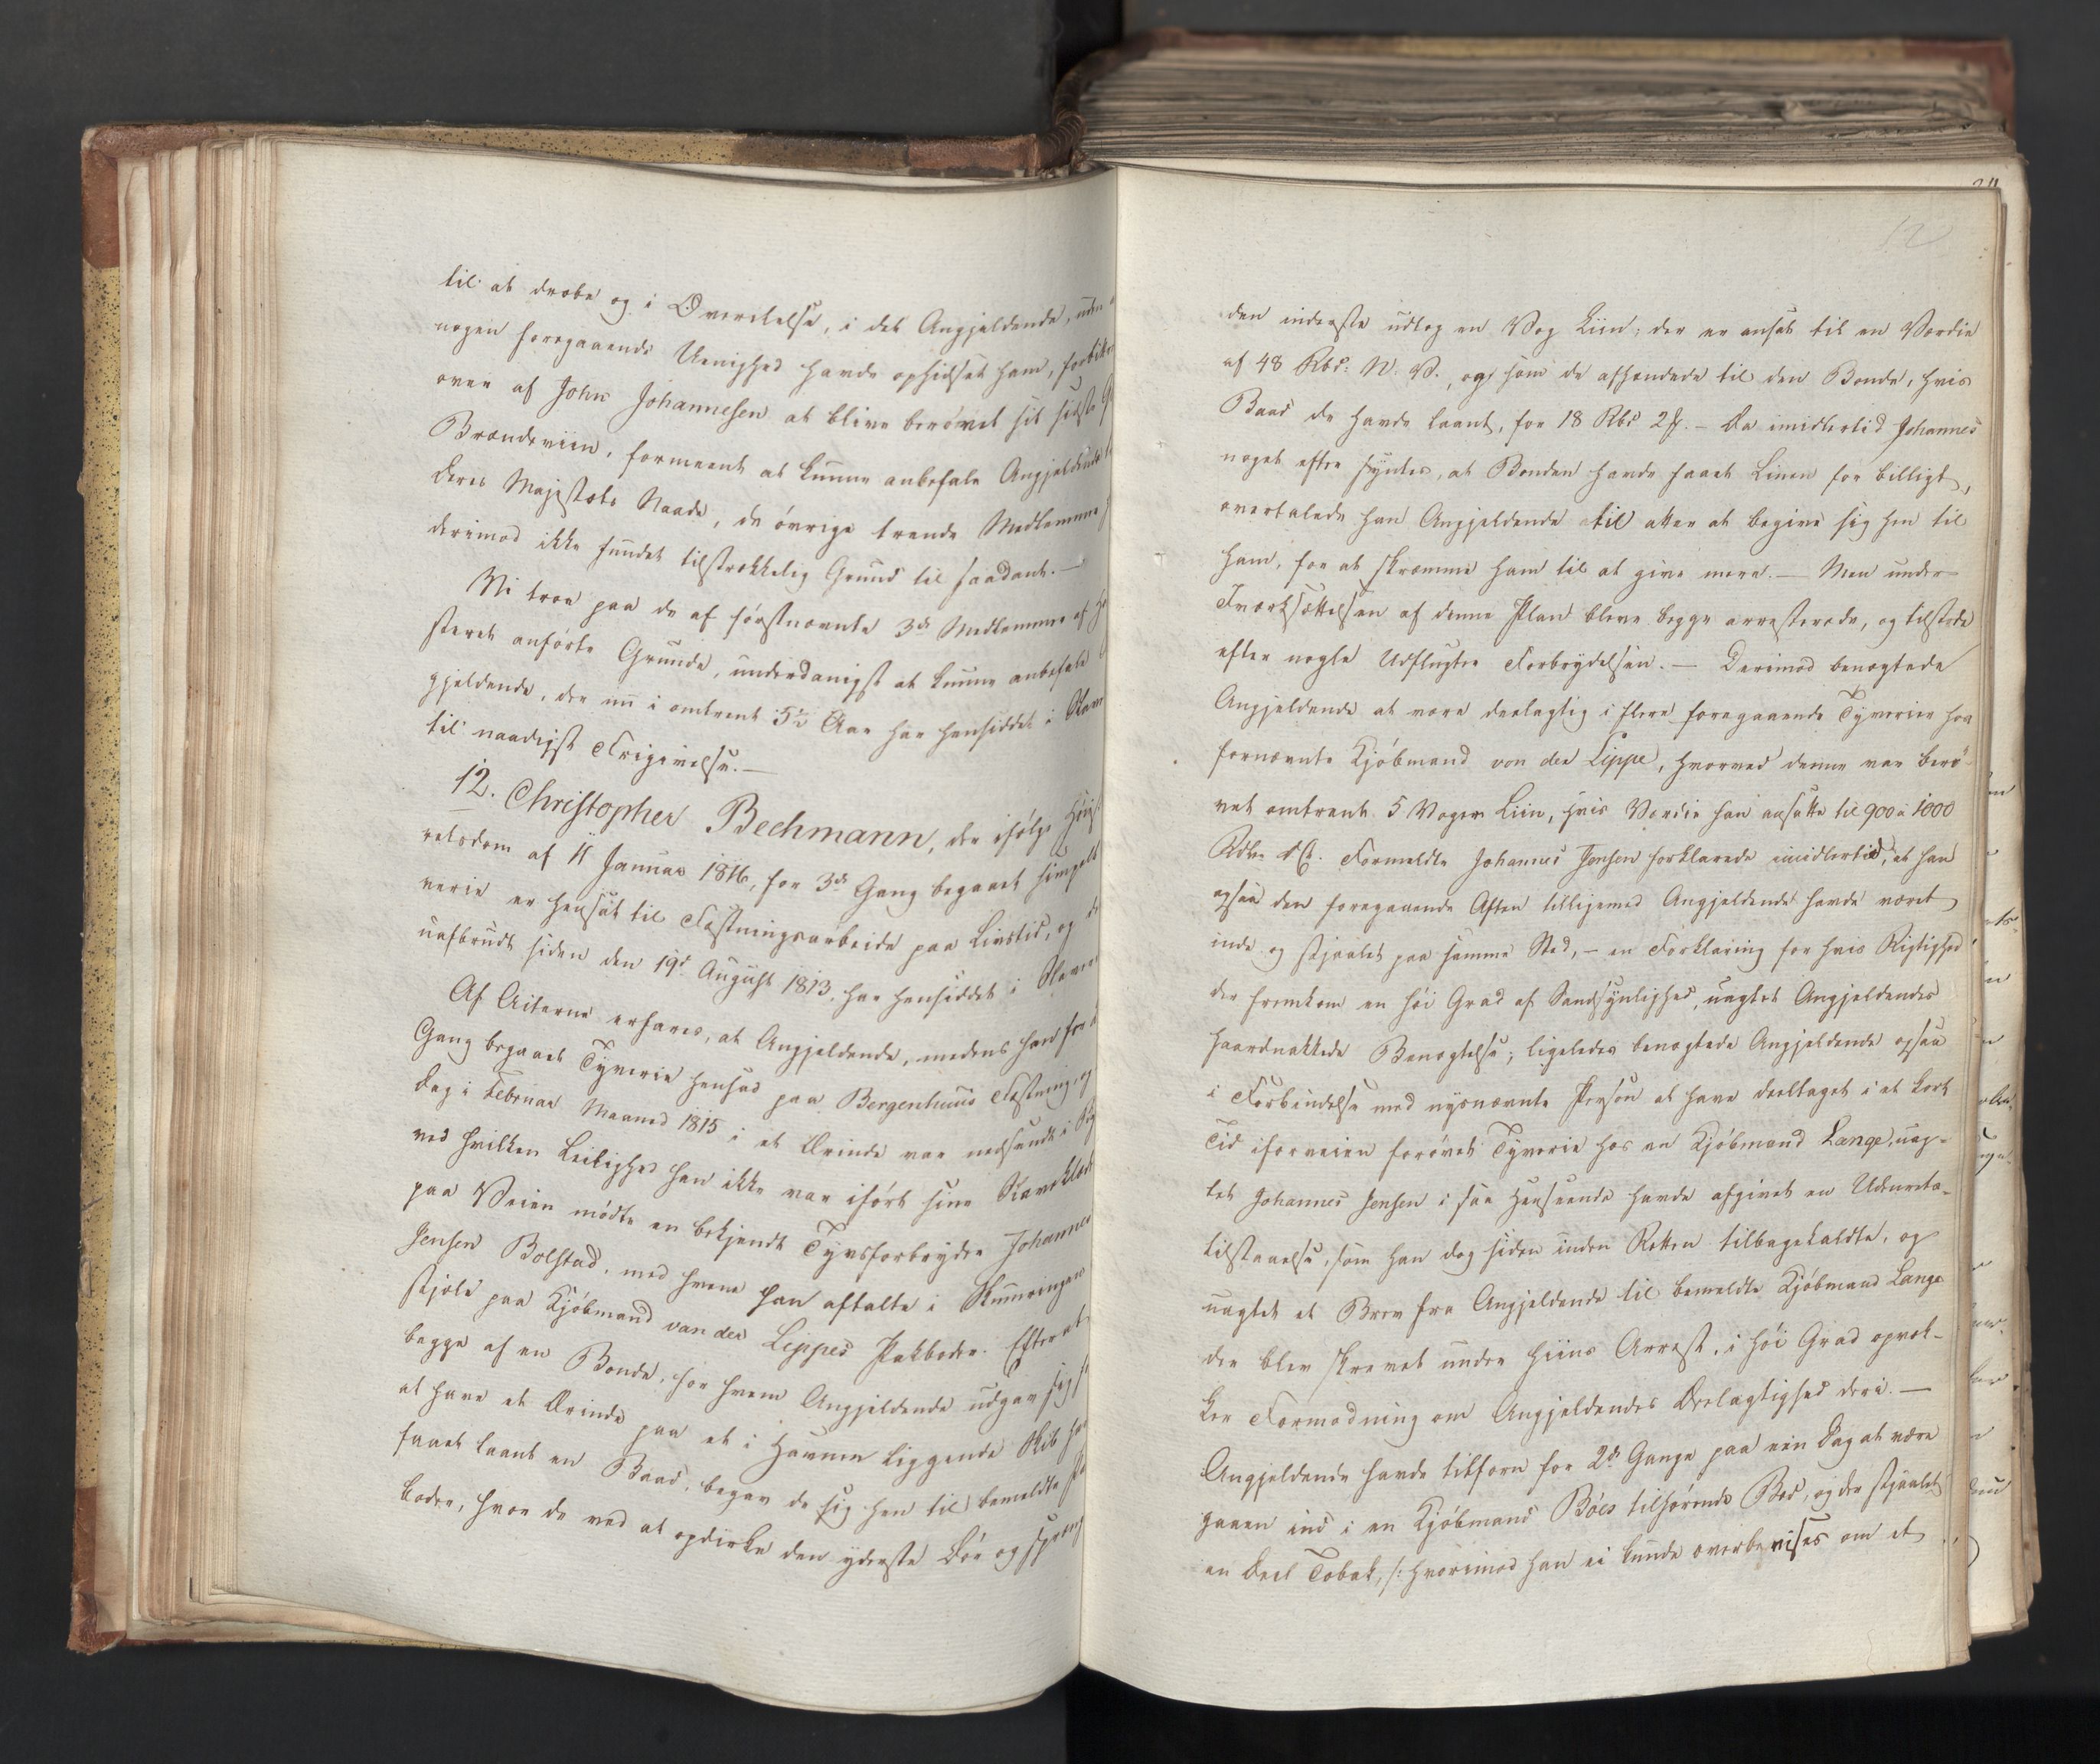 til at dræbe og i Overilelse, i det Angjeldende, uden
nogen foregaaende Uenighed havde ophidset ham, forbittret
over af John Johannesen at blive berövet sit sidste
Brændeviin, formeent at kunne anbefale Angjeldende til
Deres Majestæts Naade, de övrige trende Medlemmer
derimod ikke fundet tilstrækkelig Grund til saadant. —
Vi troe paa de af förstnævnte 3de Medlemmer af
steret anförte Grunde, underdanigst at kunne anbefale
gjeldende, der nu i omtrent 5½ Aar har hensiddet i Slave
til naadigst Frigivelse. —
12. Christopher Bechmann, der ifölge Höieste
retsdom af 11 Januar 1816, for 3de Gang begaaet simpelt
verie er hensat til Fæstningsarbeide paa Livstid, og
uafbrudt siden den 19de August 1813, har hensiddet i Slave
Af Acterne erfares, at Angjeldende, medens han for
Gang begaaet Tyverie hensad paa Bergenhuus Fæstning, og
Dag i Februar Maaned 1815 i et Ærinde var nedsendt i
ved hvilken Leilighed han ikke var ifört sine Slaveklæder
paa Veien mödte en bekjendt Tyvsforbryder Johannes
Jensen Bolstad, med hvem han aftalte i Skumringen
stjele paa Kjöbmand van der Lippes Pakboder. Efter at
begge af en Bonde, for hvem Angjeldende udgav sig
at have et Ærinde paa et i Havnen liggende Skib
faaet laant en Baad, begav de sig hen til bemeldte
boder, hvor de ved at opdirke den yderste Dör og spræng
12
den inderste udtog en Vog Liin, der er ansat til en Værdie
af 48 Rbd: N. V., og som de afhændede til den Bonde, hvis
Baad de havde laant, for 18 Rbd 2 ß. — Da imidlertid Johannes
noget efter syntes, at Bonden havde faaet Linen for billigt,
overtalede han Angjeldende til atter at begive sig hen til
ham, for at skræmme ham til at give mere. — Men under
Iværksættelsen af denne Plan bleve begge arresterede, og tilstode
efter nogle Udflugter Forbrydelsen. — Derimod benægtede
Angjeldende at være deelagtig i flere foregaaende Tyverier hos
fornævnte Kjöbmand von der Lippe, hvorved denne var berö-
vet omtrent 5 Voger Liin, hvis Værdie han ansatte til 900 a 1000
Rdlr. Formeldte Johannes Jensen forklarede imidlertid, at han
ogsaa den foregaaende Aften tilligemed Angjeldende havde været
inde og stjaalet paa samme Sted, — en Forklaring for hvis Rigtighed
der fremkom en höi Grad af Sandsynlighed, uagtet Angjeldendes
haardnakkede Benægtelse; ligeledes benægtede Angjeldende ogsaa
i Forbindelse med nysnævnte Person at have deeltaget i et kort
Tid iforveien forövet Tyverie hos en Kjöbmand Lange, uag-
tet Johannes Jensen i saa Henseende havde afgivet en Udenrets-
tilstaaelse, som han dog siden inden Retten tilbagekaldte, og
uagtet et Brev fra Angjeldende til bemeldte Kjöbmand Lange
der blev skrevet under hiins Arrest, i höi Grad opvæk-
ker Formodning om Angjeldendes Deelagtighed deri. —
Angjeldende havde tilforn for 2de Gange paa een Dag at være
gaaen ind i en Kjöbmand Böes tilhörende Bod, og der stjaalet
en Deel Tobak, /: hvorimod han ei kunde overbevises om et